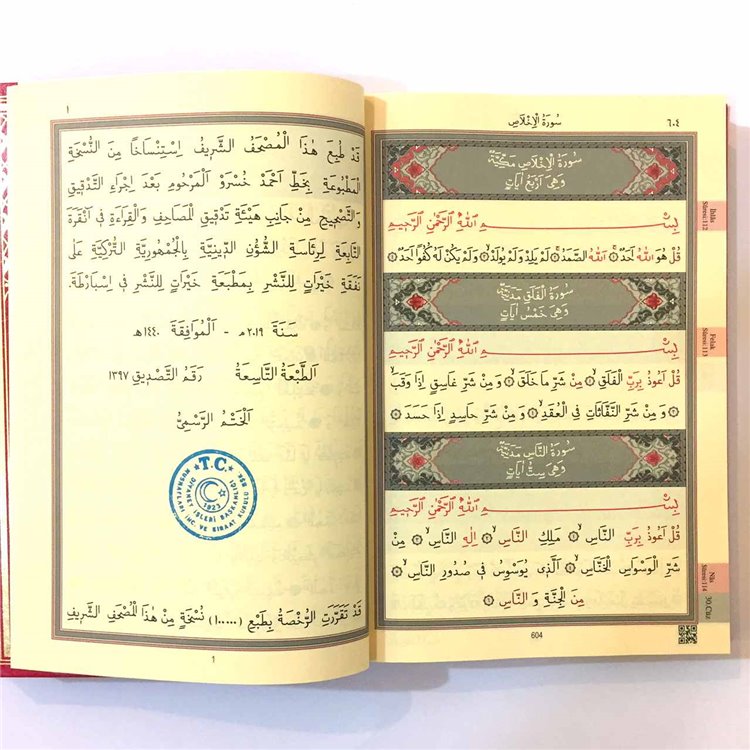 ٦٠٤
سُورَةُ الْاِخْلَاصِ
سُورَةُ الْاِخْلَاصِ مَكِّيَّةٌ
وَهِىَ اَرْبَعُ اٰيَاتٍ
بِسْــــمِ اللّٰهِ الرَّحْمٰنِ الرَّحِيمِ
قُلْ هُوَ اللّٰهُ اَحَدٌۚ ۝ اَللّٰهُ الصَّمَدُۚ ۝ لَمْ يَلِدْ وَلَمْ يُولَدْۙ ۝ وَلَمْ يَكُنْ لَهُ كُفُوًا اَحَدٌ ۝
سُورَةُ الْفَلَقِ مَدَنِيَّةٌ
وَهِىَ خَمْسُ اٰيَاتٍ
بِسْــــمِ اللّٰهِ الرَّحْمٰنِ الرَّحِيمِ
قُلْ اَعُوذُ بِرَبِّ الْفَلَقِۙ ۝ مِنْ شَرِّ مَا خَلَقَۙ ۝ وَ مِنْ شَرِّ غَاسِقٍ اِذَا وَقَبَۙ
۝ وَ مِنْ شَرِّ النَّفَّاثَاتِ فِى الْعُقَدِۙ ۝ وَ مِنْ شَرِّ حَاسِدٍ اِذَا حَسَدَ ۝
سُورَةُ النَّاسِ مَدَنِيَّةٌ
وَهِىَ سِتُّ اٰيَاتٍ
بِسْــــمِ اللّٰهِ الرَّحْمٰنِ الرَّحِيمِ
قُلْ اَعُوذُ بِرَبِّ النَّاسِۙ ۝ مَلِكِ النَّاسِۙ ۝ اِلٰهِ النَّاسِۙ ۝ مِنْ
شَرِّ الْوَسْوَاسِ الْخَنَّاسِۙ ۝ اَلَّذِى يُوَسْوِسُ فِى صُدُورِ النَّاسِۙ ۝
مِنَ الْجِنَّةِ وَ النَّاسِ ۝
604
İhlâs
Sûresi:112
Felak
Sûresi:113
Nâs
Sûresi:114
30.Cüz
١
قَدْ طُبِعَ هٰذَا الْمُصْحَفُ الشَّرِيفُ اِسْتِنْسَاخًا مِنَ النُّسْخَةِ
الْمَطْبُوعَةِ بِخَطِّ اَحْمَدْ خُسْرَوْ الْمَرْحُومِ بَعْدَ اِجْرَاءِ التَّدْقِيقِ
وَالتَّصْحِيحِ مِنْ جَانِبِ هَيْئَةِ تَدْقِيقِ الْمَصَاحِفِ وَالْقِرَاءَةِ فِى اَنْقَرَةَ
التَّابِعَةِ لِرِئَاسَةِ الشُّؤُنِ الدِّينِيَّةِ بِالْجُمْهُورِيَّةِ التُّرْكِيَّةِ عَلَى
نَفَقَةِ خَيْرَاتٍ لِلنَّشْرِ بِمَطْبَعَةِ خَيْرَاتٍ لِلنَّشْرِ فِى اِسْبَارْطَةَ.
سَنَةَ ٢٠١٩م - اَلْمُوَافِقَةَ ١٤٤٠هـ
اَلطَّبْعَةُ التَّاسِعَةُ رَقْمُ التَّصْدِيقِ ١٣٩٧
اَلْخَتْمُ الرَّسْمِىُّ
T.C.
DİYANET İŞLERİ BAŞKANLIĞI
MUSHAFLARI İNC. VE KIRAAT KURULU BŞK.
1923
قَدْ تَقَرَّرَتِ الرُّخْصَةُ بِطَبْعِ (١٠.....) نُسْخَةٍ مِنْ هٰذَا الْمُصْحَفِ الشَّرِيفِ
1